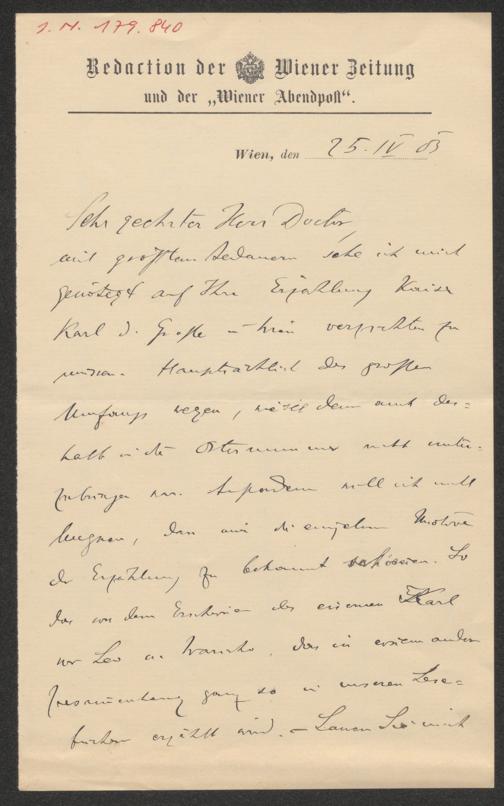 I. N. 179.840
Redaction der Wiener Zeitung
und der „Wiener Abendpost“.
Wien, den 25. IV 03
Sehr geehrter Herr Doctor,
mit größtem Bedauern sehe ich mich
genötigt auf Ihre Erzählung Kaiser
Karl d. Große verzichten zu
müssen. Hauptsächlich des großen
Umfangs wegen, denn auch des=
halb in der Osternummer nicht unter=
zubringen war. Außerdem will ich nicht
leugnen, dass mir die einzelnen Motive
der Erzählung zu bekannt. So
das von dem Erscheinen des eisernen Karl
vor das in einem andern
Zusammenhang ganz so in unseren Lese=
büchern erzählt wird. – Lassen Sie mich